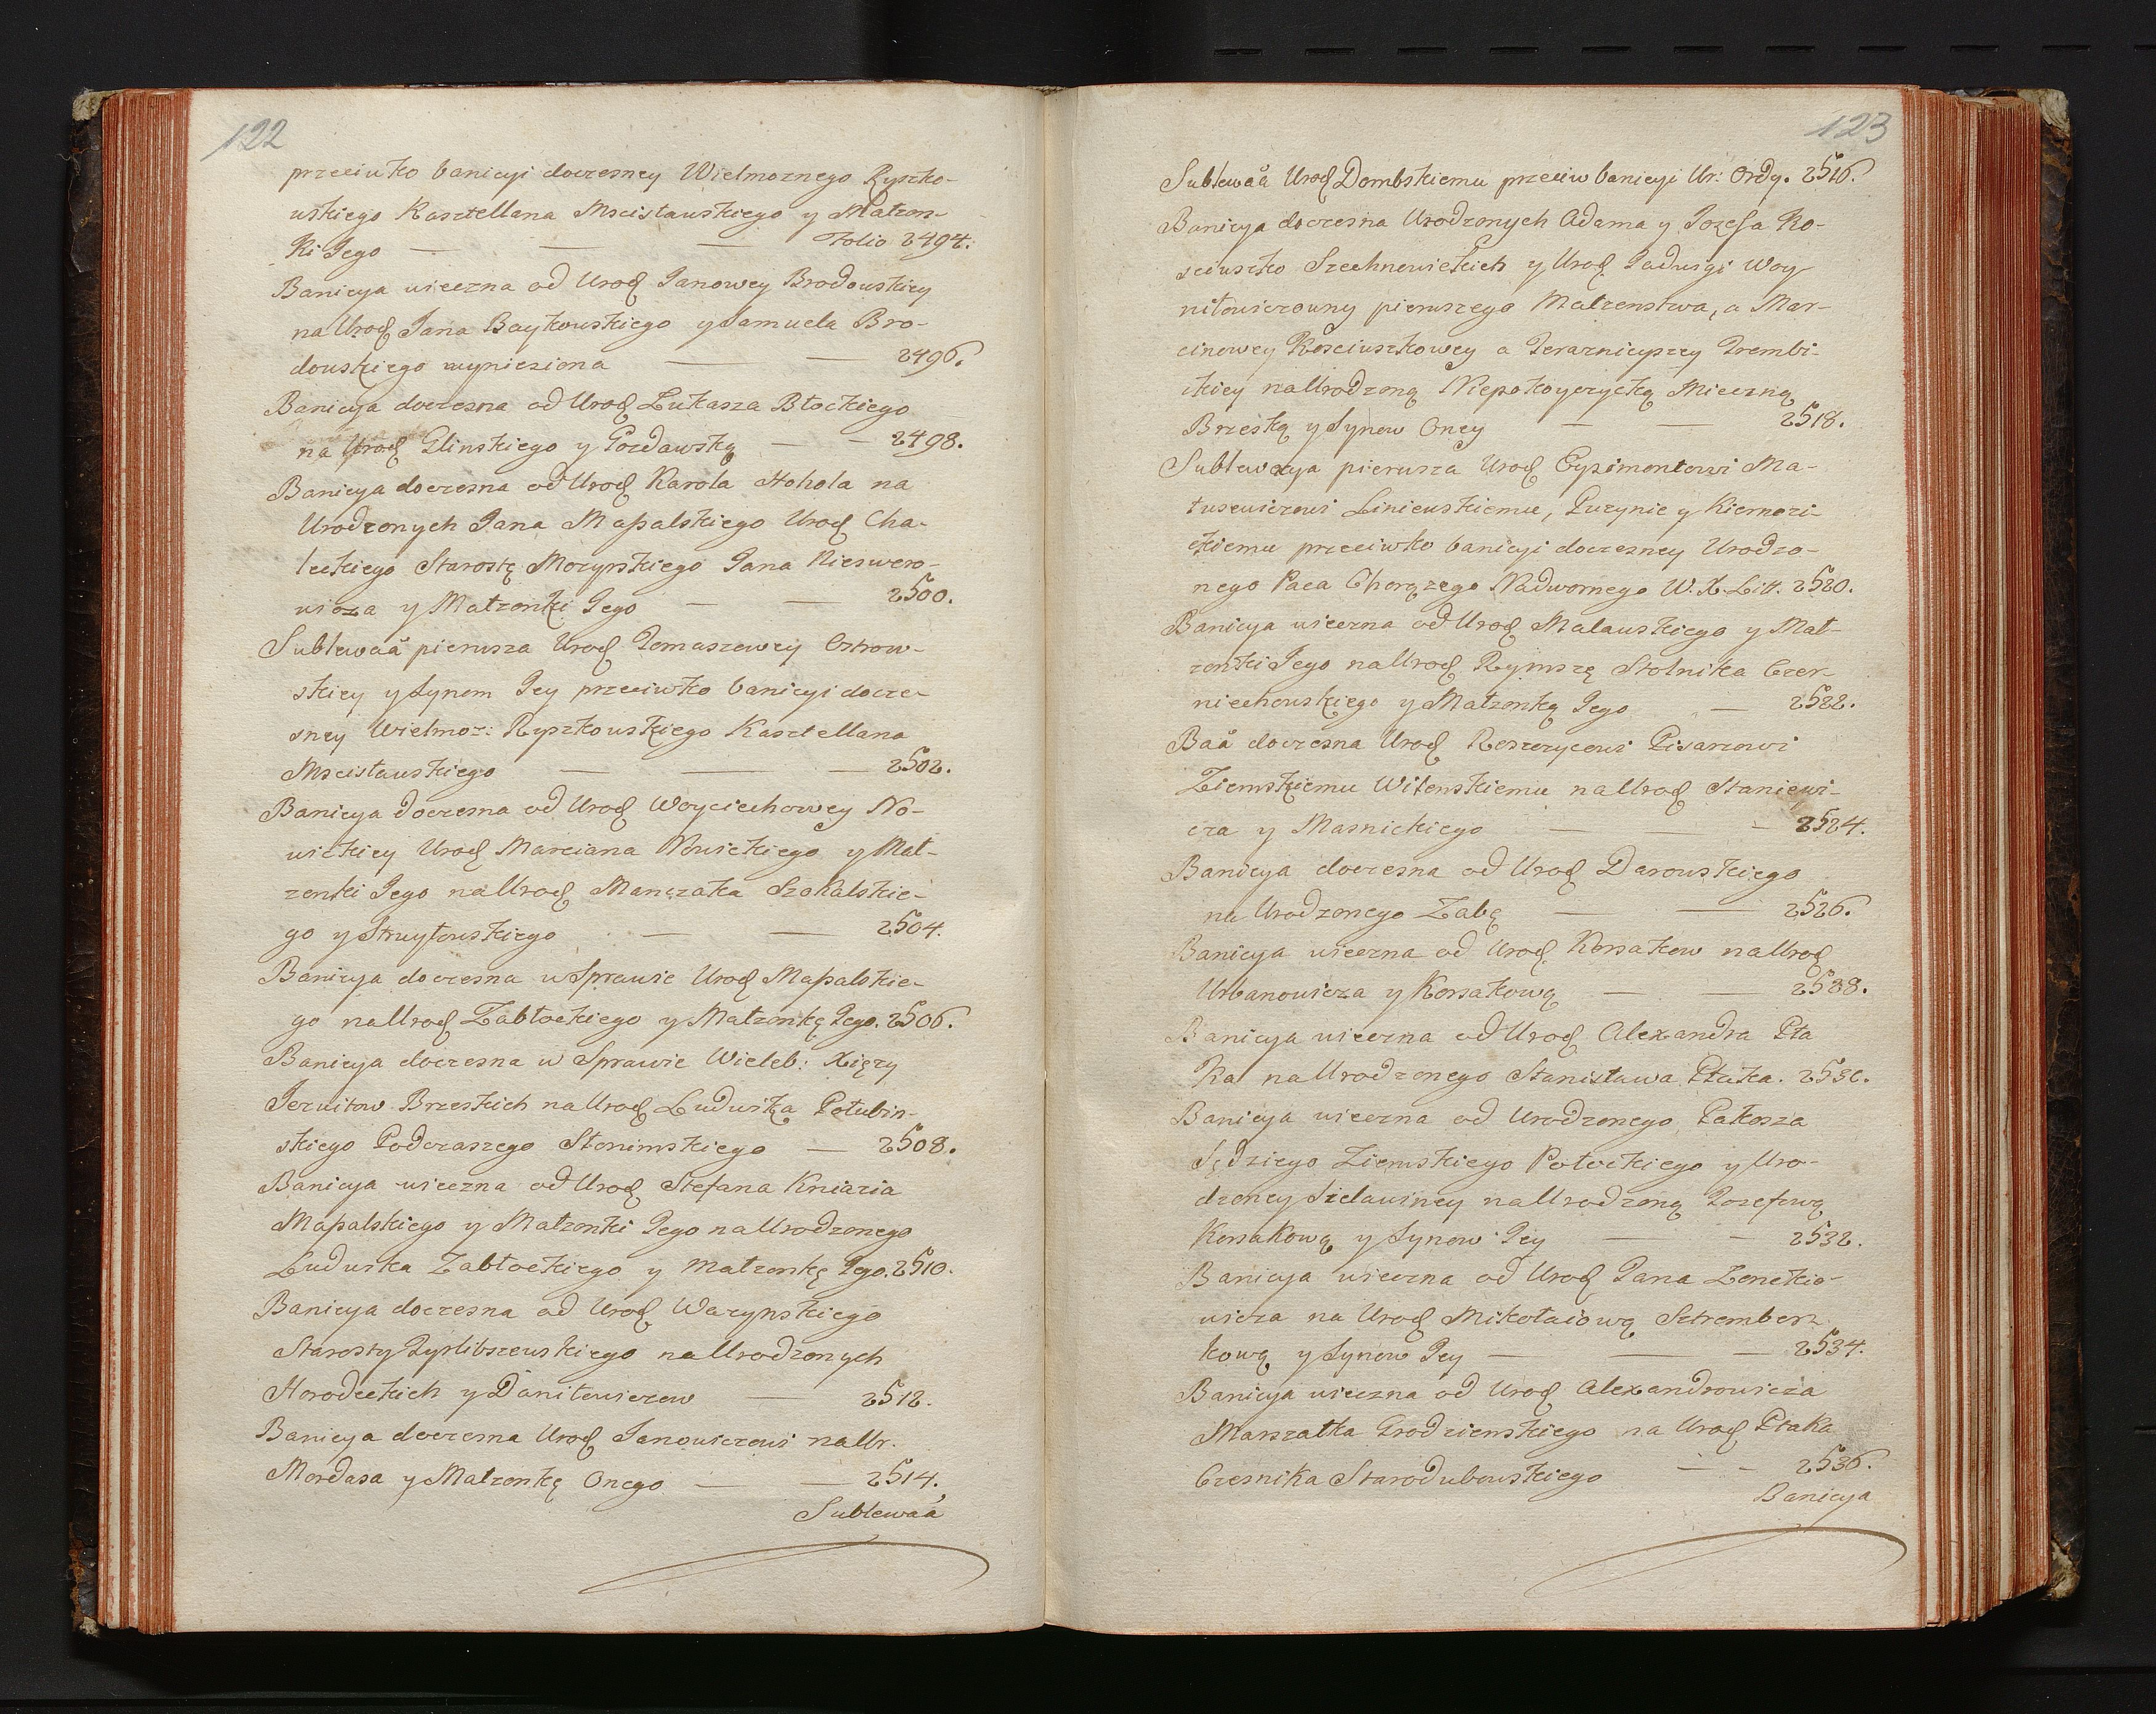 122
przeciwko banicyi doczesney Wielmoznego Ryszko-
wskiego Kasztellana Mscisławskiego y Małzon-
ki Jego — — — Folio 2494.
Banicya wieczna od Urod Janowey Brodowskiey
na Urod Jana Baykowskiego y Samuela Bro-
dowskiego wyniesiona — — 2496.
Banicya doczesna od Urod Łukasza Błockiego
na Urod Glinskiego y Gozdawską — — 2498.
Banicya doczesna od Urod Karola Hohola na
Urodzonych Jana Massalskiego Urod Cha-
leckiego Starostę Mozyrskiego Jana Nieswero-
wicza y Małzonki Jego — — 2500.
Sublewaã pierwsza Urod Tomaszewey Ostrow-
skiey y Synom Jey przeciwko banicyi docze-
sney Wielmoz: Ryszkowskiego Kasztellana
Mscisławskiego — — — 2502.
Banicya doczesna od Urod Woyciechowey No-
wickiey Urod Marciana Nowickiego y Mał-
zonki Jego na Urod Manczaka Szokalskie-
go y Strutyłowskiego — — 2504.
Banicya doczesna w Sprawie Urod Massalskie-
go na Urod Zabłockiego y Małzonkę Jego. 2506.
Banicya doczesna w Sprawie Wieleb: Xięzy
Jezuitow Brzeskich na Urod Ludwika Połubin-
skiego Podczaszego Słonimskiego — 2508.
Banicya wieczna od Urod Stefana Kniazia
Massalskiego y Małzonki Jego na Urodzonego
Ludwika Zabłockiego y Małzonkę Jego. 2510.
Banicya doczesna od Urod Wazynskiego
Starosty Zyrlibszewskiego na Urodzonych
Horodeckich y Daniłowiczow — 2512.
Banicya doczesna Urod Janowiczowi na Ur.
Mordasa y Małzonkę Onego — — 2514.
Sublewaã
123
Sublewaã Urod Dombskiemu przeciw banicyi Ur: Ordy. 2516.
Banicya doczesna Urodzonych Adama y Jozefa Ko-
sciuszko Siechnowickich y Urod Jadwigi Woy-
niłowiczowny pierwszego Małzenstwa, a Mar-
cinowey Kosciuszkowey a Terazniejszey Trembi-
ckiey na Urodzoną Niepokoyczycką Mieczną
Brzeską y Synow Oney — — 2518.
Sublewacya pierwsza Urod Eysimontowi Ma-
tusewiczowi Liniewskiemu, Puzynie y Kiernozi-
ckiemu przeciwko banicyi doczesney Urodzo-
nego Paca Chorązego Nadwornego W. X. Litt. 2520.
Banicya wieczna od Urod Malawskiego y Mał-
zonki Jego na Urod Rymszę Stolnika Czer-
niechowskiego y Małzonkę Jego — 2522.
Baã doczesna Urod Reszczycowi Pisarzowi
Ziemskiemu Witenskiemu na Urod Staniewi-
cza y Masnickiego — — 2524.
Banicya doczesna od Urod Darowskiego
na Urodzonego Zabę — — 2526.
Banicya wieczna od Urod Korsakow na Urod
Urbanowicza y Korsakową — — 2528.
Banicya wieczna od Urod Alexandra Pta
Ka na Urodzonego Stanisława Ptaka. 2530.
Banicya wieczna od Urodzonego Pakosza
Sędziego Ziemskiego Połockiego y Uro-
dzoney Sielawiney na Urodzoną Jozefową
Korsakową y Synow Jey — — 2532.
Banicya wieczna od Urod Jana Zenckio-
wicza na Urod Mikołaiową Sztrember-
kową y Synow Jey — — — 2534.
Banicya wieczna od Urod Alexandrowicza
Marszałka Grodzienskiego na Urod Ptaka
Czesnika Starodubowskiego — — 2536.
Banicya